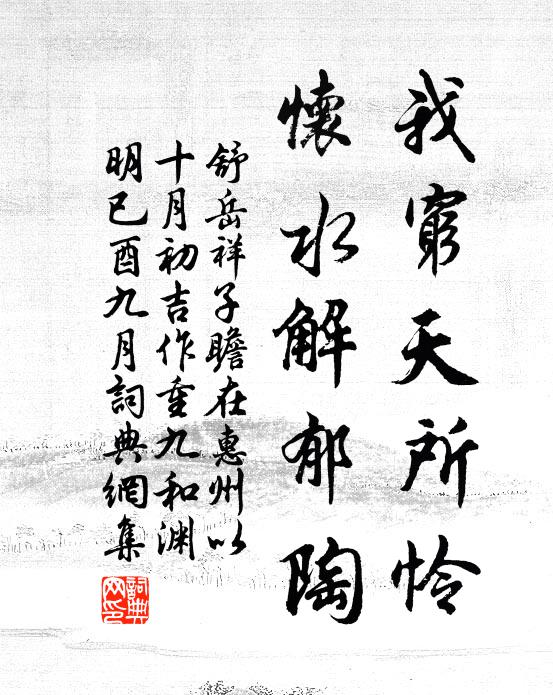 我窮天所怜
懷水解郁陶
舒岳祥子瞻在惠州以
十月初吉作重九和渊
明己酉九月詞典網集
詞典
网印